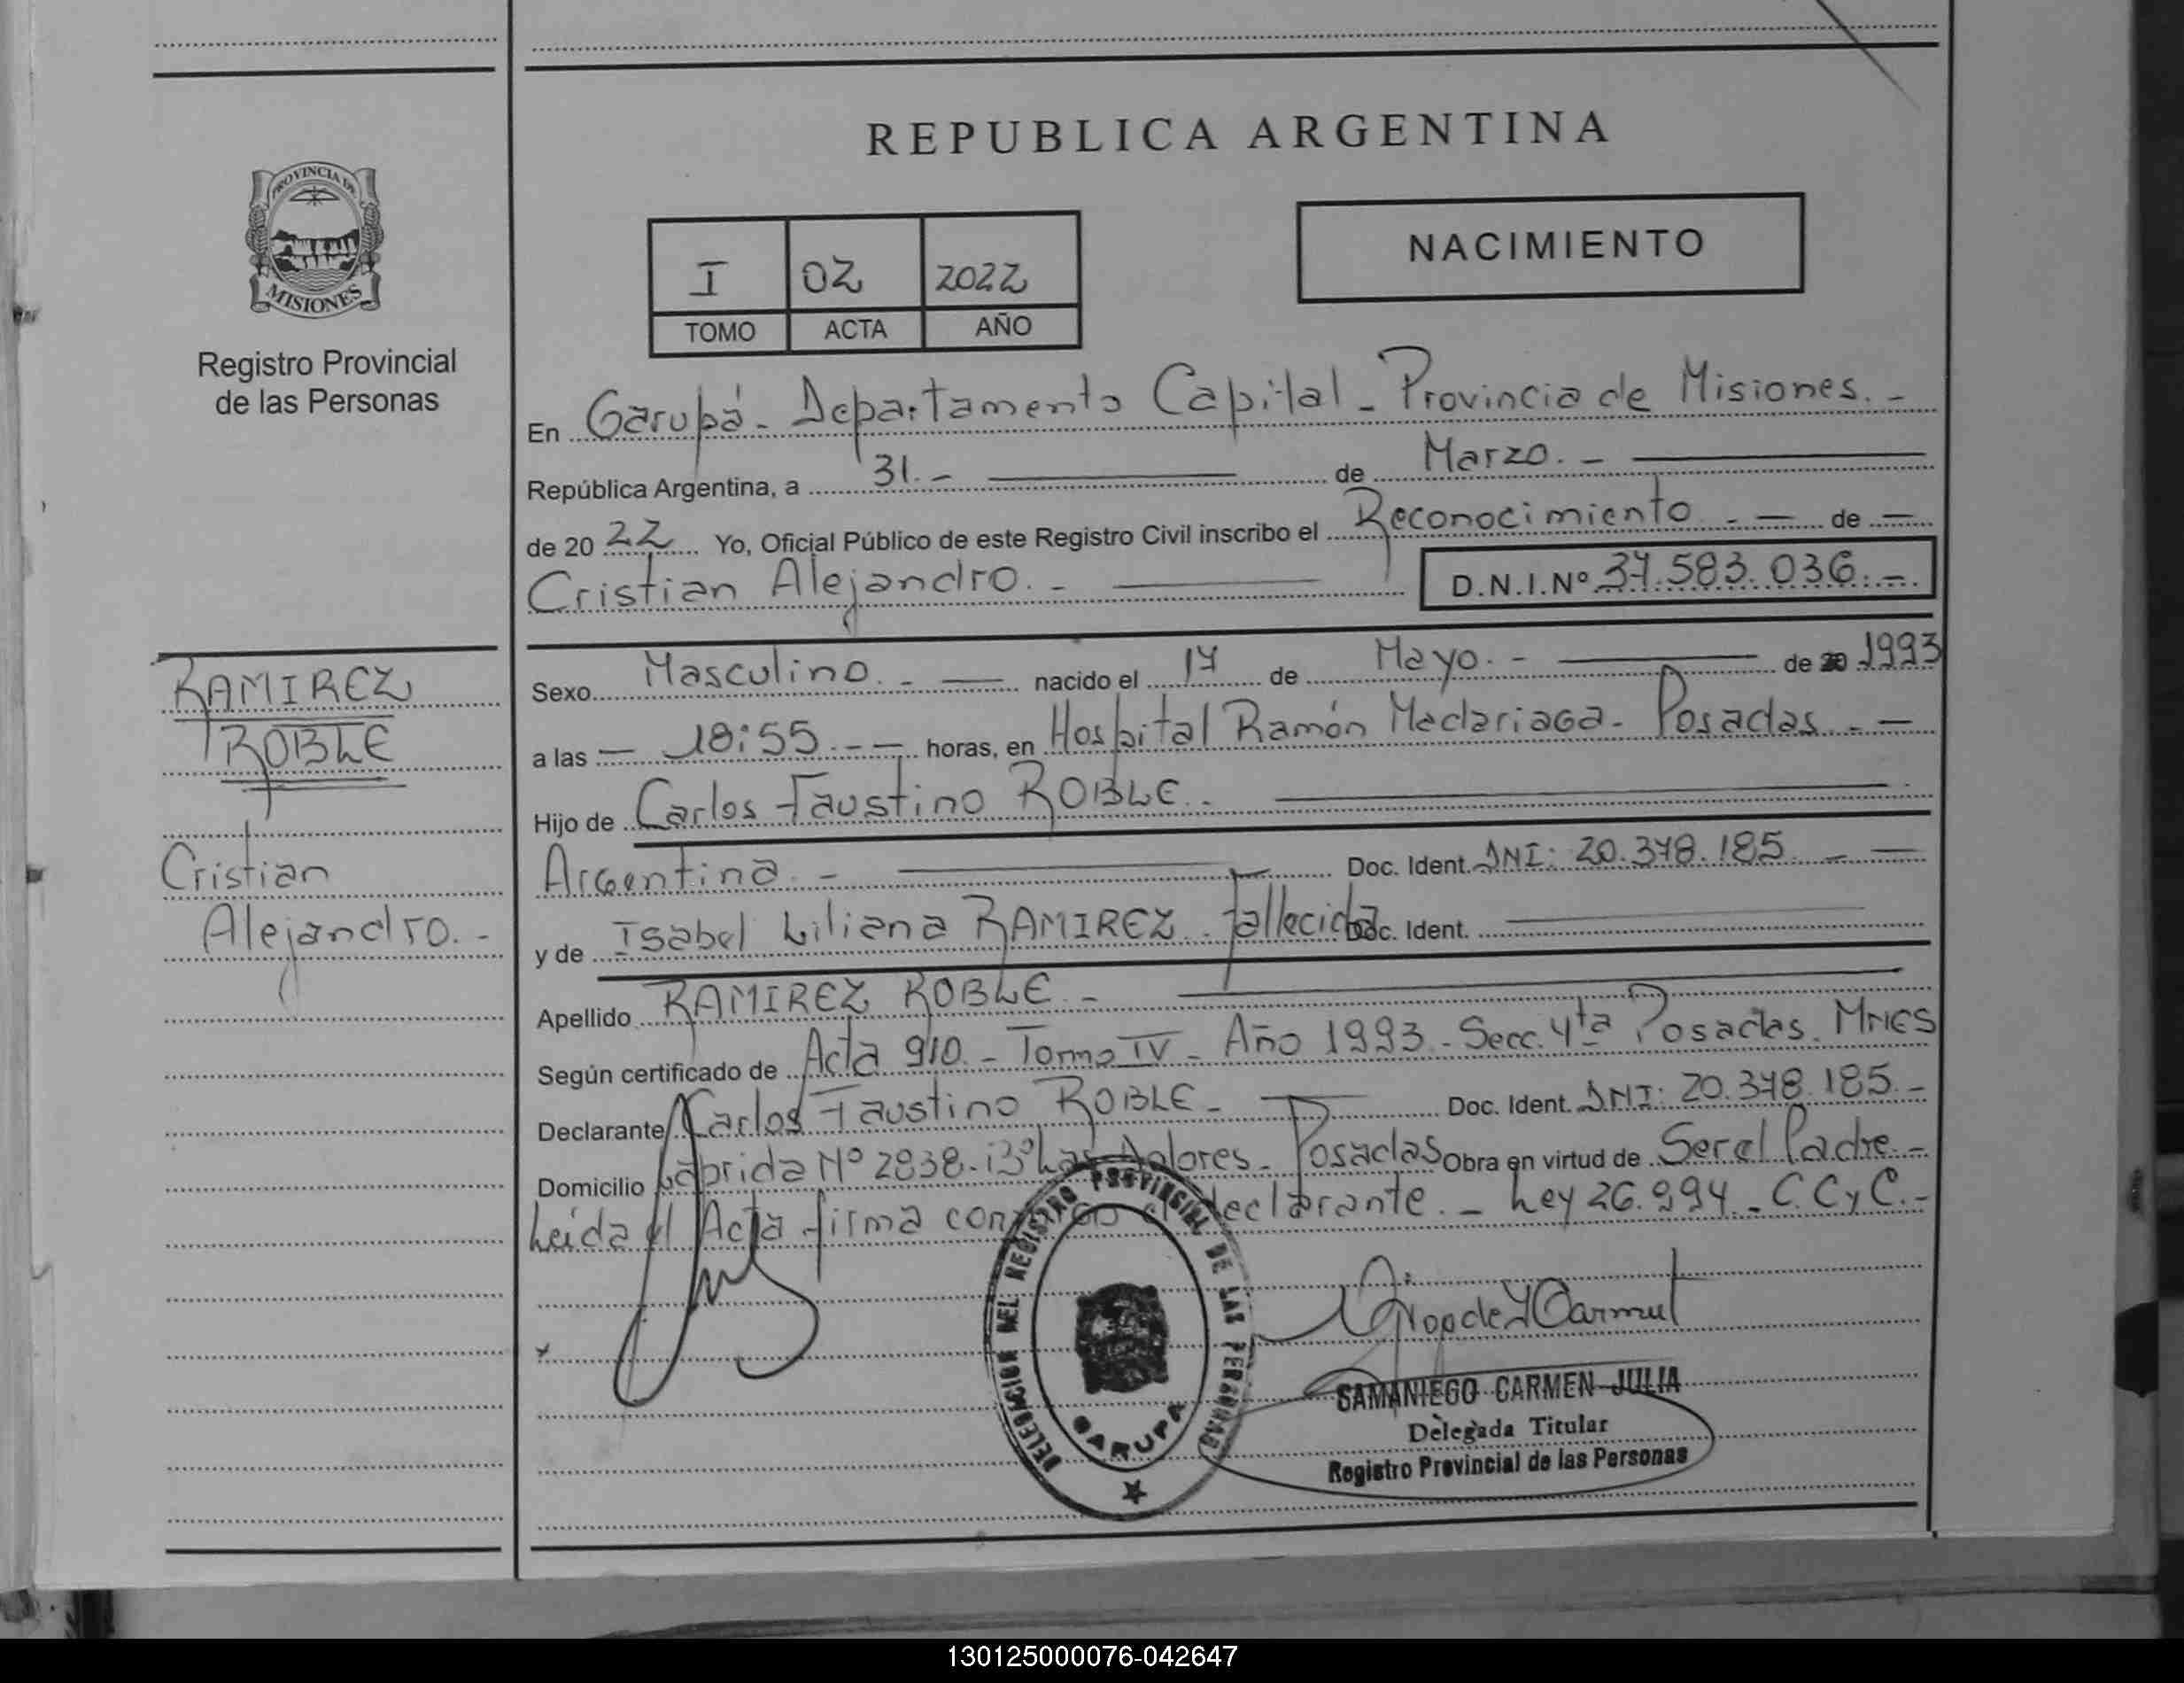 REPUBLICA ARGENTINA
PROVINCIA DE
MISIONES
Registro Provincial
de las Personas
NACIMIENTO
I 02 2022
TOMO ACTA AÑO
En Garupá - Departamento Capital - Provincia de Misiones. -
República Argentina, a 31. - de Marzo. -
de 20 22 Yo, Oficial Público de este Registro Civil inscribo el Reconocimiento - - de -
Cristian Alejandro. - D.N.I.Nº 37.583.036. -
RAMIREZ
ROBLE
Cristian
Alejandro. -
Sexo Masculino. - - nacido el 17 de Mayo. - de 20 1993
a las - 18:55. - - horas, en Hospital Ramón Madariaga - Posadas. - -
Hijo de Carlos Faustino ROBLE. -
Argentina. - Doc. Ident. DNI: 20.378.185. - -
y de Isabel Liliana RAMIREZ. Fallecida Doc. Ident.
Apellido RAMIREZ ROBLE. -
Según certificado de Acta 910. - Tomo IV - Año 1993. - Secc. 4ta Posadas. Mnes
Declarante Carlos Faustino ROBLE - Doc. Ident. DNI: 20.378.185. -
Domicilio Laprida Nº 2838 - Bº Las Dolores - Posadas Obra en virtud de Ser el Padre. -
Leída el Acta firma conmigo el declarante. - Ley 26.994 - C.C y C. -
DELEGACION DEL REGISTRO PROVINCIAL DE LAS PERSONAS
GARUPA
SAMANIEGO CARMEN JULIA
Delegada Titular
Registro Provincial de las Personas
130125000076-042647